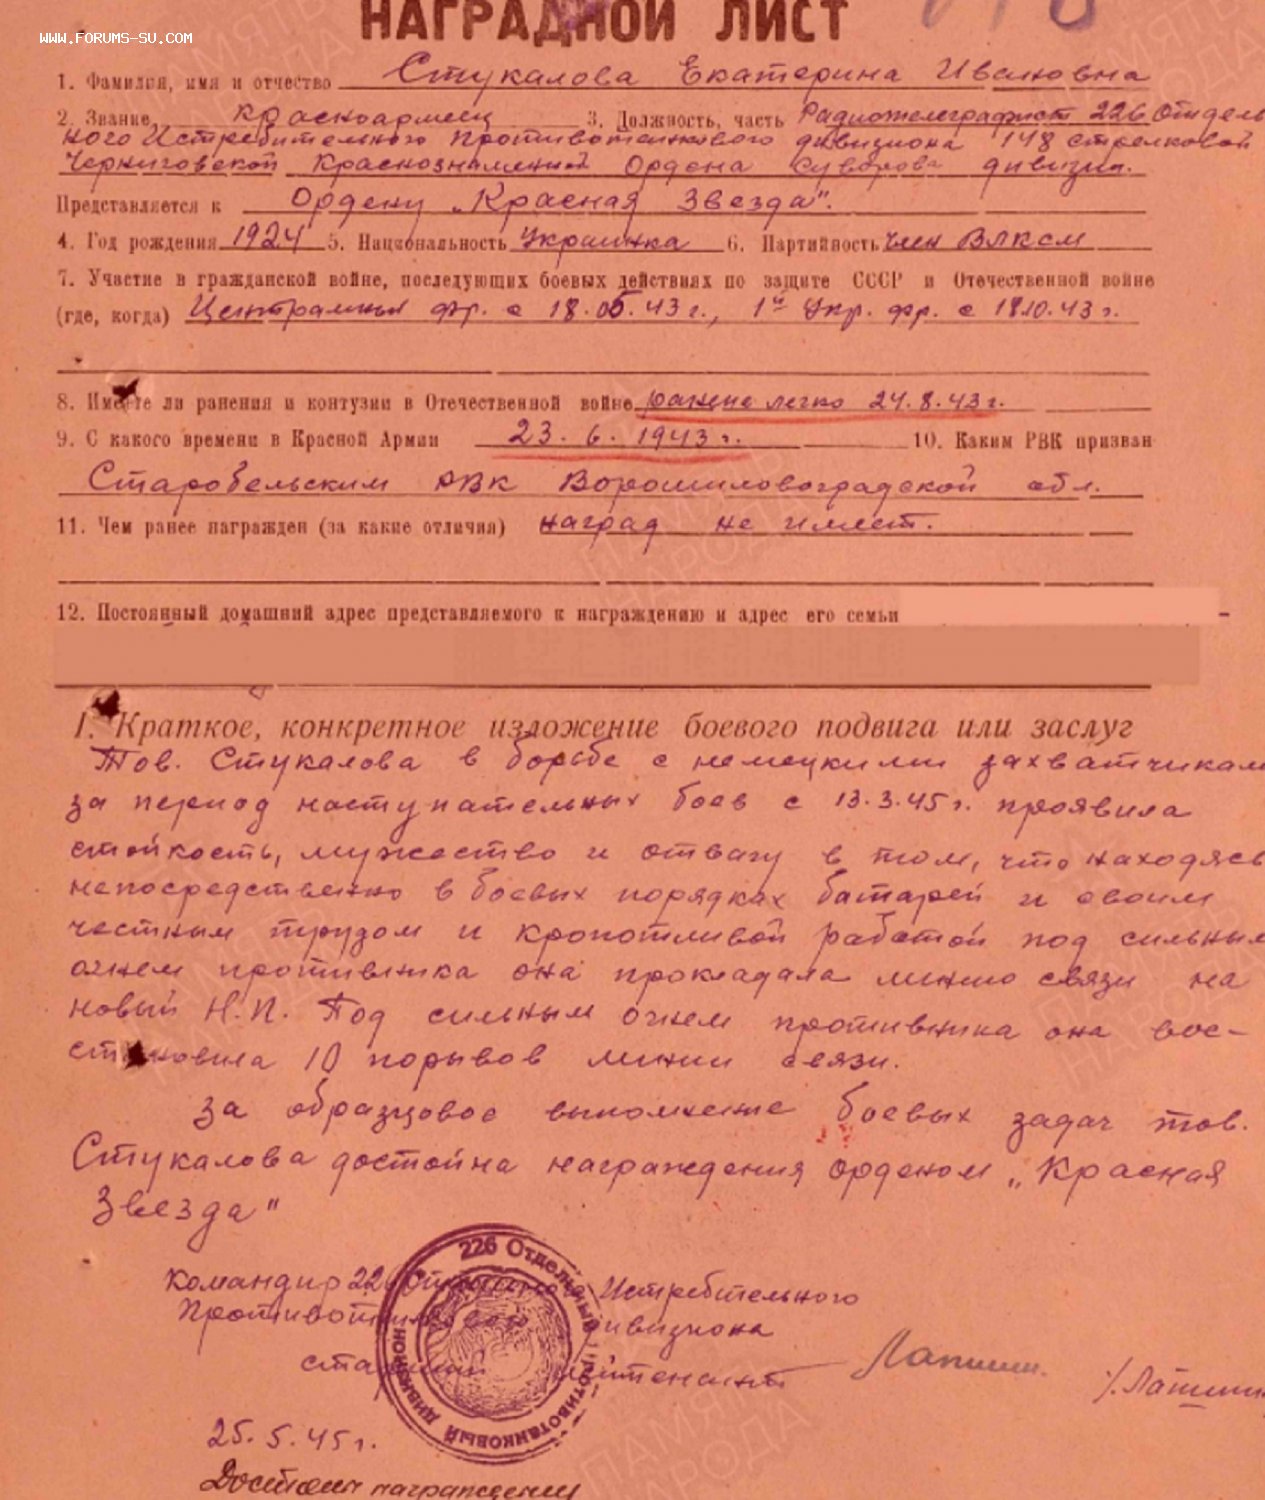 www.forums-su.com
НАГРАДНОЙ ЛИСТ
1. Фамилия, имя и отчество Стукалова Екатерина Ивановна
2. Звание Красноармеец 3. Должность, часть Радиотелеграфист 226 Отдель
ного Истребительного Противотанкового дивизиона 148 стрелковой
Черниговской Краснознаменной Ордена Суворова дивизии.
Представляется к Ордену „Красная Звезда".
4. Год рождения 1924 5. Национальность Украинка 6. Партийность Член ВЛКСМ
7. Участие в гражданской войне, последующих боевых действиях по защите СССР и Отечественной войне
(где, когда) Центральный фр. с 18.05.43 г., 1й Укр. фр. с 18.10.43 г.
8. Имеете ли ранения и контузии в Отечественной войне ранена легко 24.8.43 г.
9. С какого времени в Красной Армии 23.6.1943 г. 10. Каким РВК призван
Старобельским РВК Ворошиловоградской обл.
11. Чем ранее награжден (за какие отличия) наград не имеет.
12. Постоянный домашний адрес представляемого к награждению и адрес его семьи
I. Краткое, конкретное изложение боевого подвига или заслуг
Тов. Стукалова в борьбе с немецкими захватчикам
за период наступательных боев с 13.3.45 г. проявила
стойкость, мужество и отвагу в том, что находясь
непосредственно в боевых порядках батарей и своим
честным трудом и кропотливой работой под сильным
огнем противника она прокладала линию связи на
новый Н.П. Под сильным огнем противника она вос-
становила 10 порывов линии связи.
За образцовое выполнение боевых задач тов.
Стукалова достойна награждения орденом „Красная
Звезда"
Командир 226 Отдельного Истребительного
Противотанкового дивизиона
старший лейтенант Лапшин. /Лапшин
226 Отдельный Противотанковый дивизион
25.5.45 г.
Достоин награждения